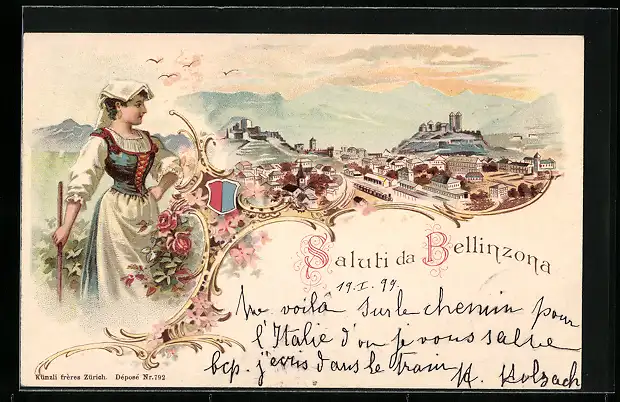 Saluti da Bellinzona
19.I.99.
Me voilà sur le chemin pour
l'Italie d'ou je vous salue
bcp. j'ecris dans le train
H. Holzach
Künzli frères Zürich. Déposé Nr. 792